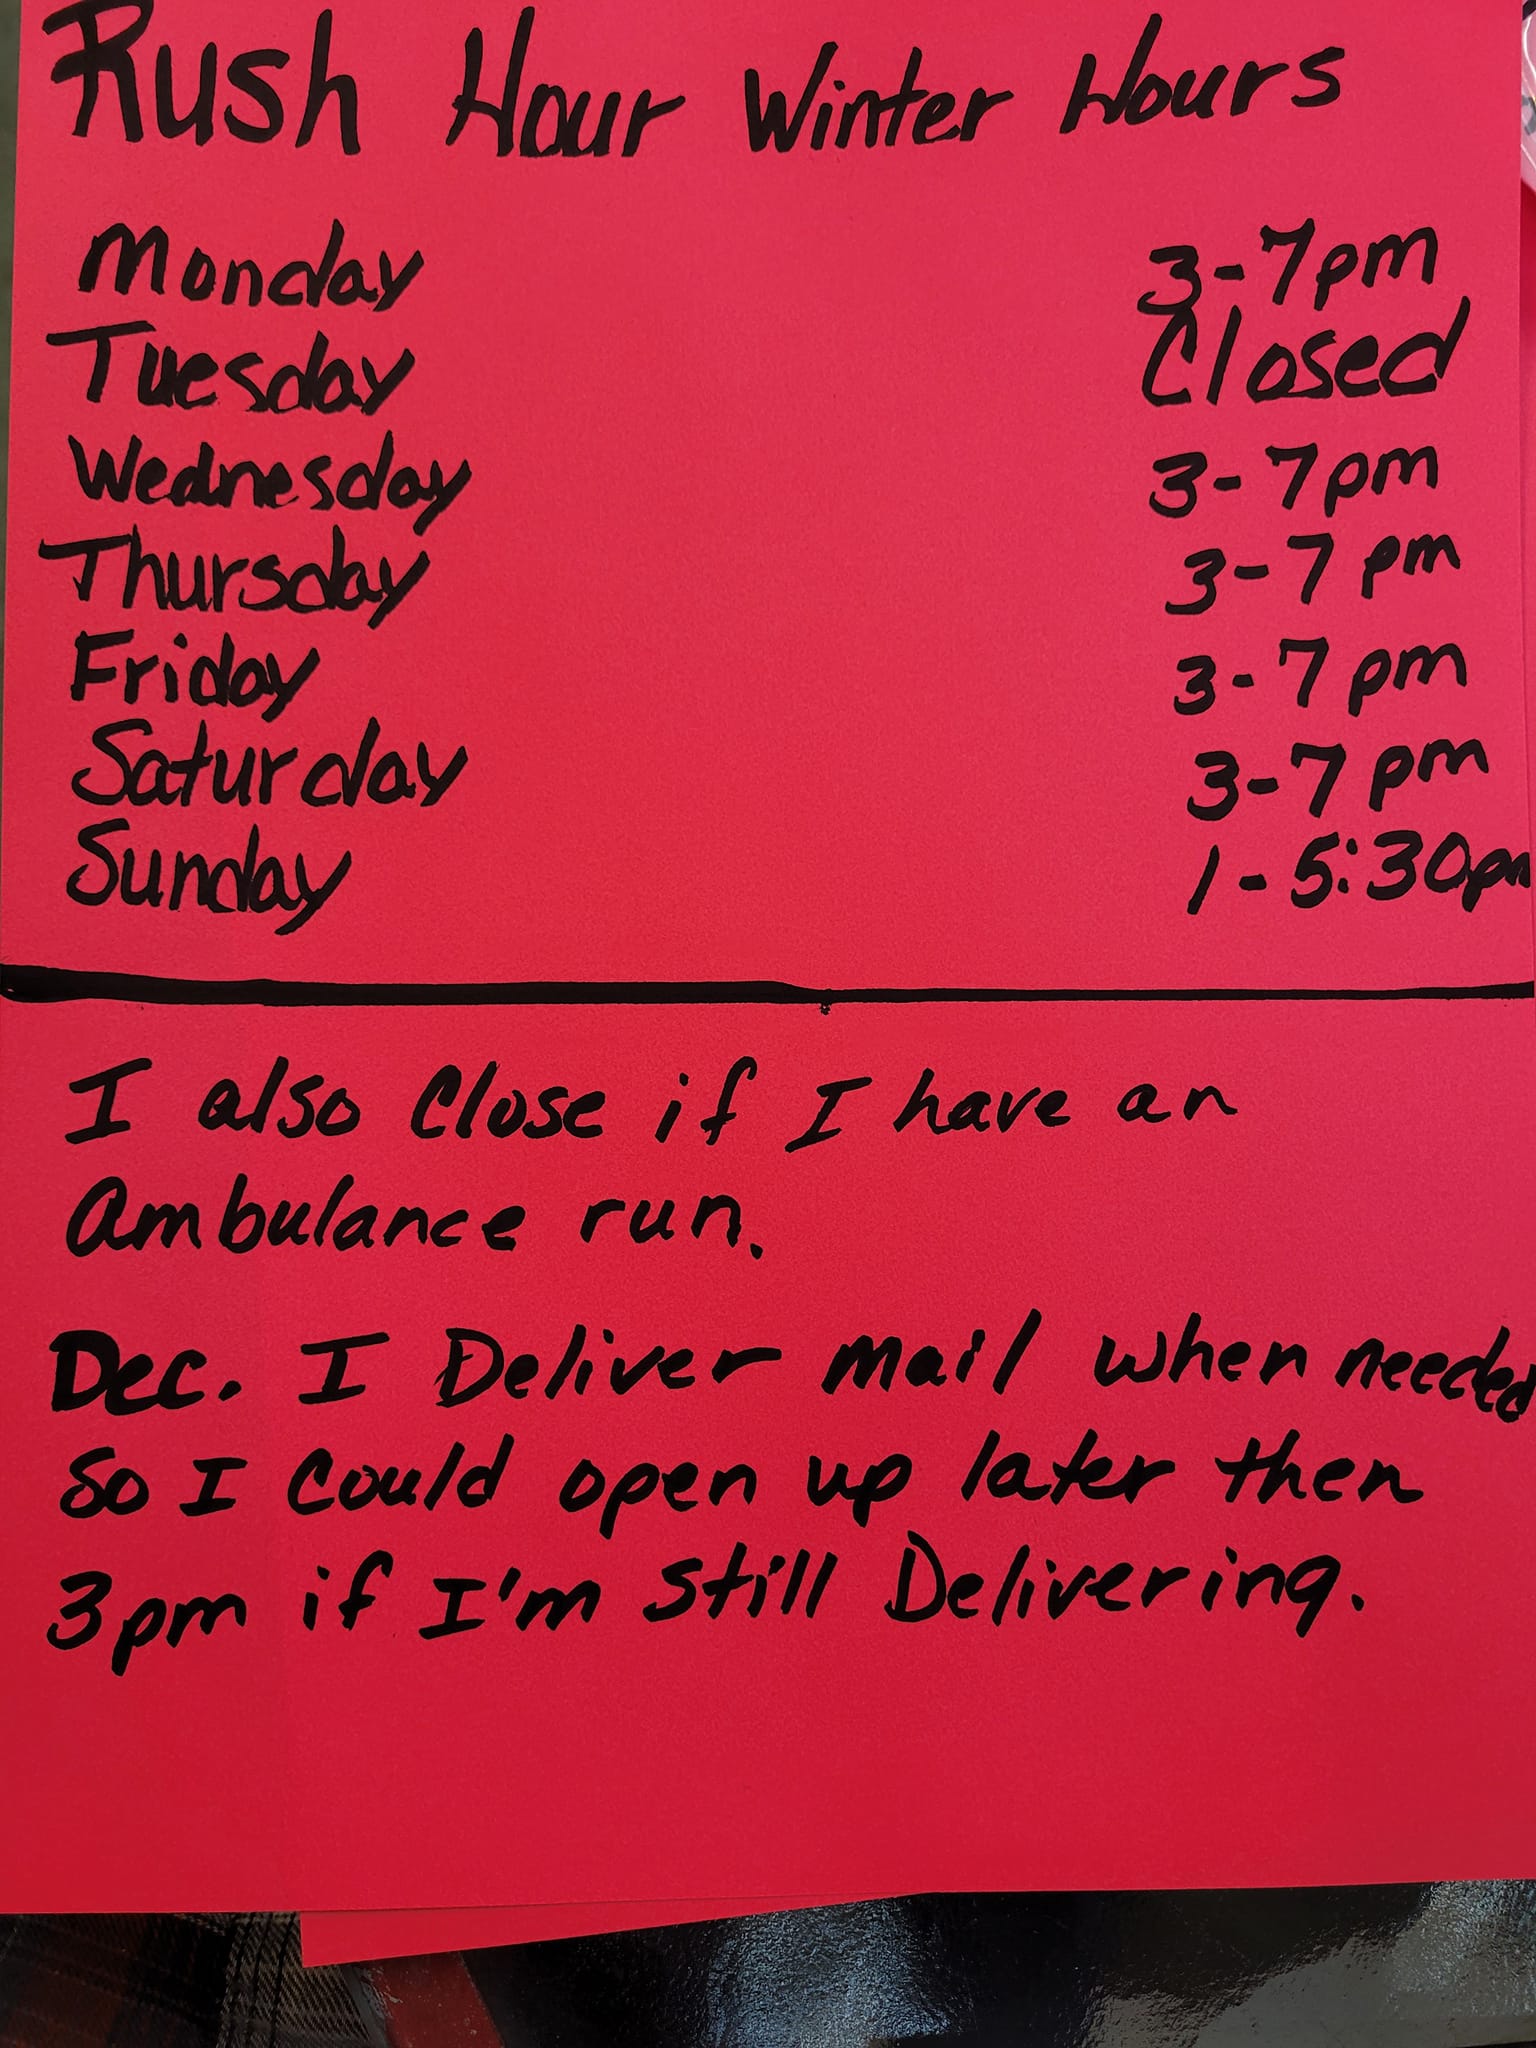 Rush Hour Winter Hours
Monday 3-7pm
Tuesday Closed
Wednesday 3-7pm
Thursday 3-7 pm
Friday 3-7 pm
Saturday 3-7 pm
Sunday 1-5:30pm
I also Close if I have an
Ambulance run.
Dec. I Deliver mail when needed
So I Could open up later then
3pm if I'm still Delivering.